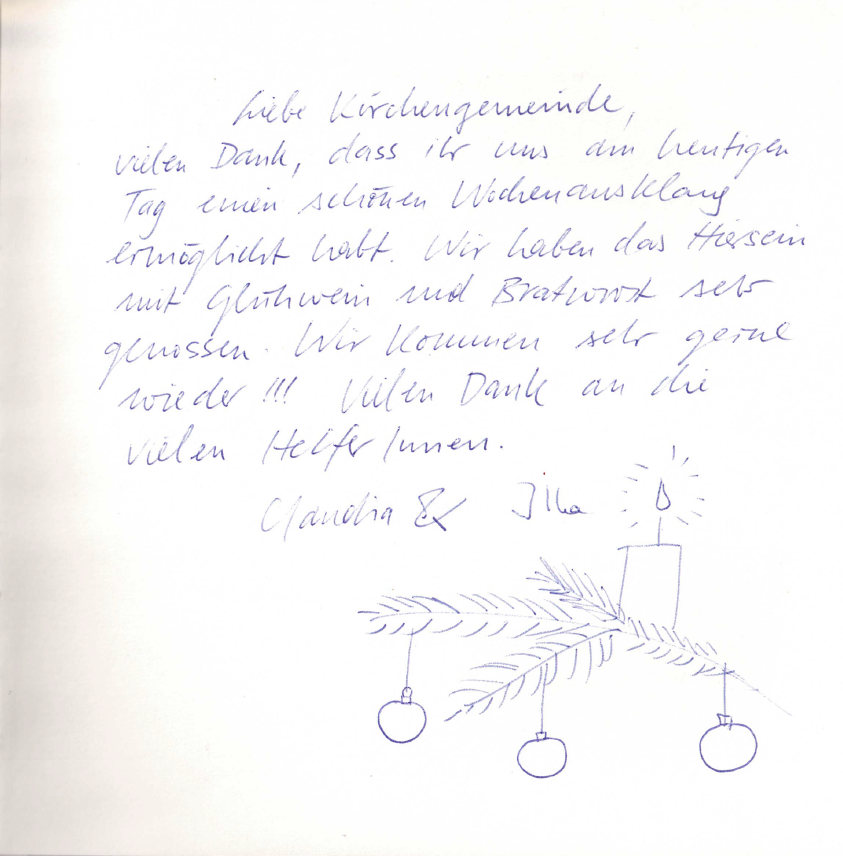 Liebe Kirchengemeinde,
vielen Dank, dass ihr uns am heutigen
Tag einen schönen Wochenausklang
ermöglicht habt. Wir haben das Hiersein
mit Glühwein und Bratwurst sehr
genossen. Wir kommen sehr gerne
wieder!!! Vielen Dank an die
vielen HelferInnen.
Claudia & Ilka